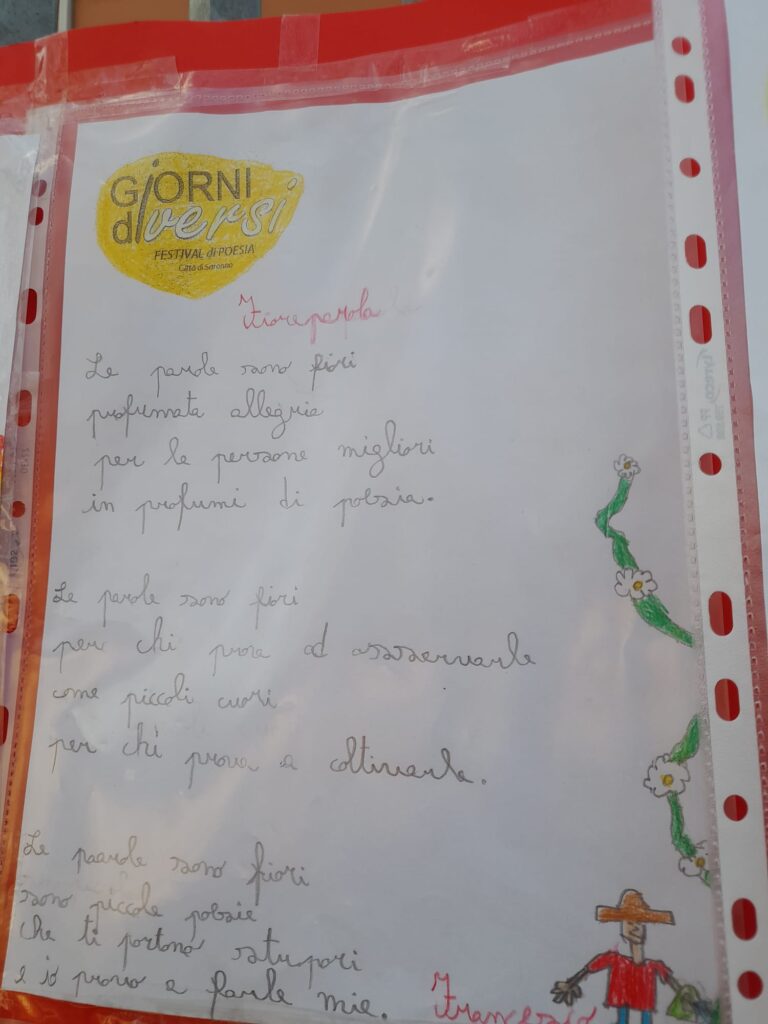 GiORNI
diversi
FESTIVAL di POESIA
Città di Saronno
Fioreparola
Le parole sono fiori
profumata allegria
per le persone migliori
in profumi di poesia.
Le parole sono fiori
per chi prova ad osservarle
come piccoli cuori
per chi prova a coltivarle.
Le paarole sono fiori
sono piccole poesie
che ti portono stupori
e io provo a farle mie.
Francesco